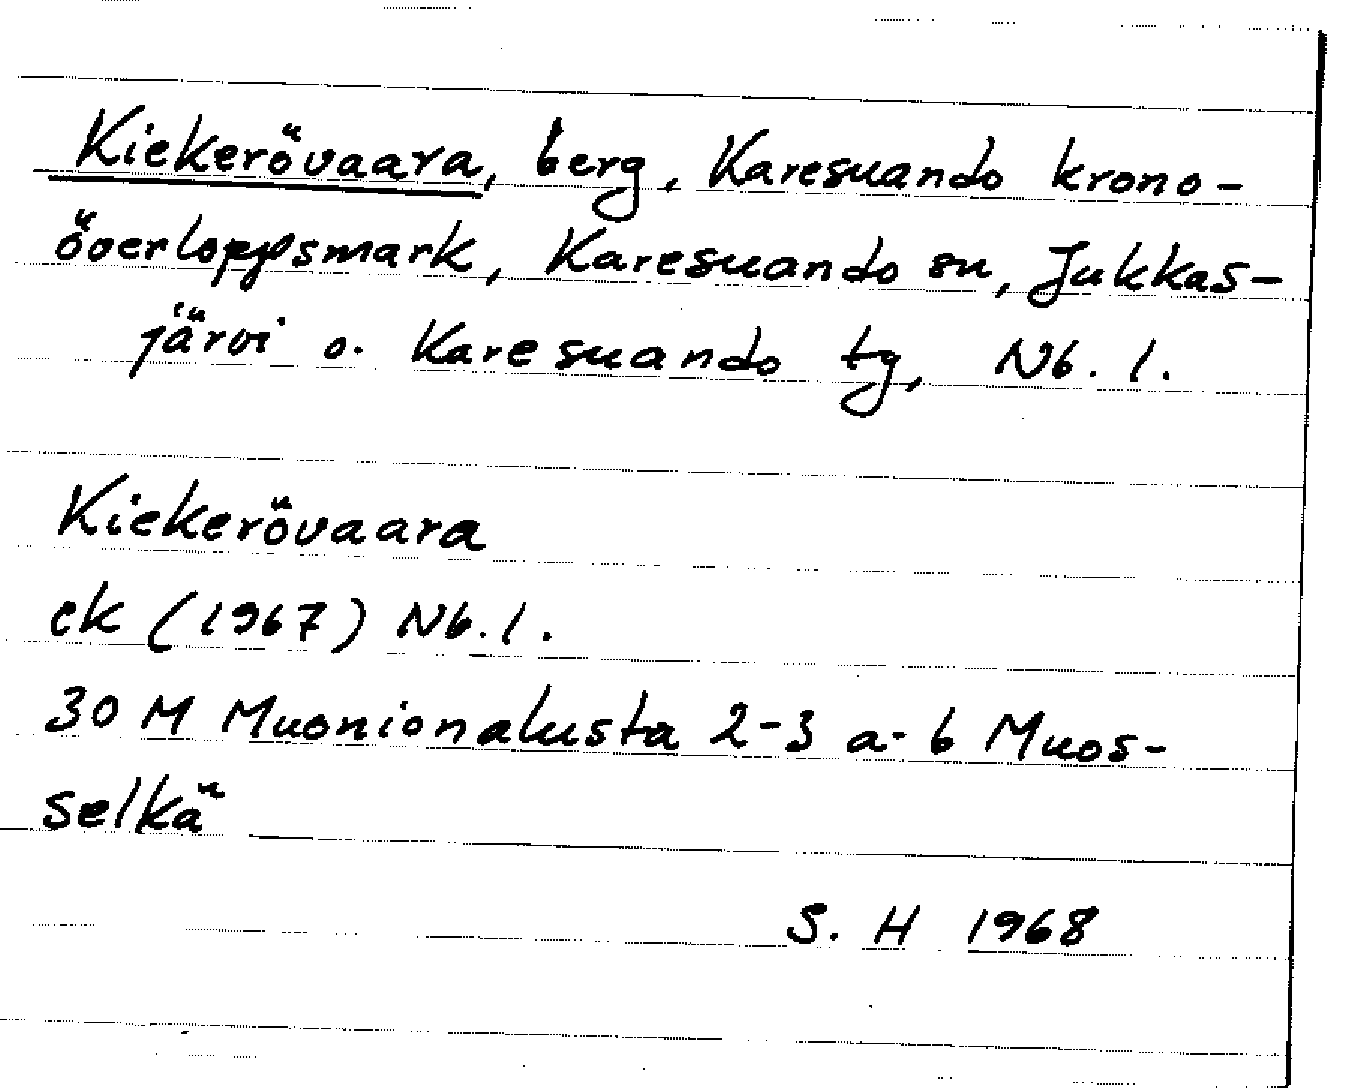 Kiekerövaara, berg, Karesuando krono-
överloppsmark, Karesuando sn, Jukkas-
järvi o. Karesuando tg, Nb. l.
Kiekerövaara
ek (1967) Nb. l.
30 M Muonionalusta 2-3 a-b Muos-
selkä
S. H 1968